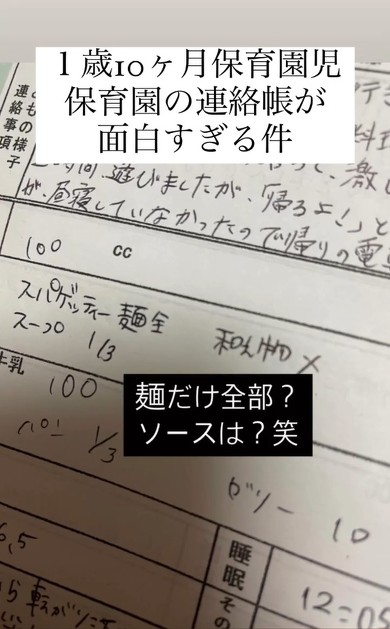 １歳10ヶ月保育園児
保育園の連絡帳が
面白すぎる件
遊びましたが、「帰ろよ!」と
が、昼寝していなかったので帰りの電
連絡事項
もの様子
100 cc
スパゲッティー麺全
和え物 ×
スープ 1/3
牛乳
100
麺だけ全部？
ソースは？笑
パン 1/3
ゼリー 10
6.5
睡眠
12:05
その